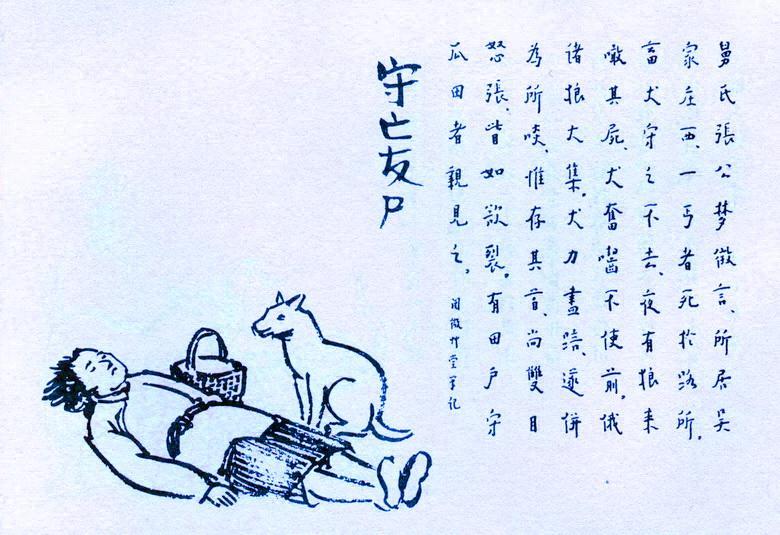 舅氏張公夢徵言、所居吴
家庄西、一丐者死於路所。
畜犬守之不去、夜有狼来
噉其屍、犬奮嚙不使前。俄
诸狼大集。犬力盡踣、遂併
為所啖、惟存其首、尚雙目
怒張、眥如欲裂。有田户守
瓜田者親見之。
阅微草堂笔记
守亡友尸